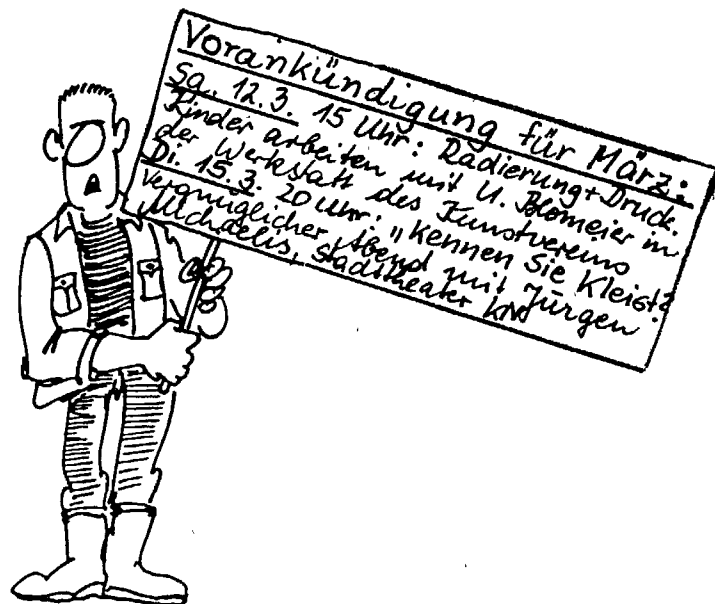 Vorankündigung für März:
Sa. 12.3. 15 Uhr: Radierung + Druck.
Kinder arbeiten mit U. Blomeier in
der Werkstatt des Kunstvereins
Di. 15.3. 20 Uhr: "Kennen Sie Kleist?
Vergnüglicher Abend mit Jürgen
Michaelis, Stadttheater